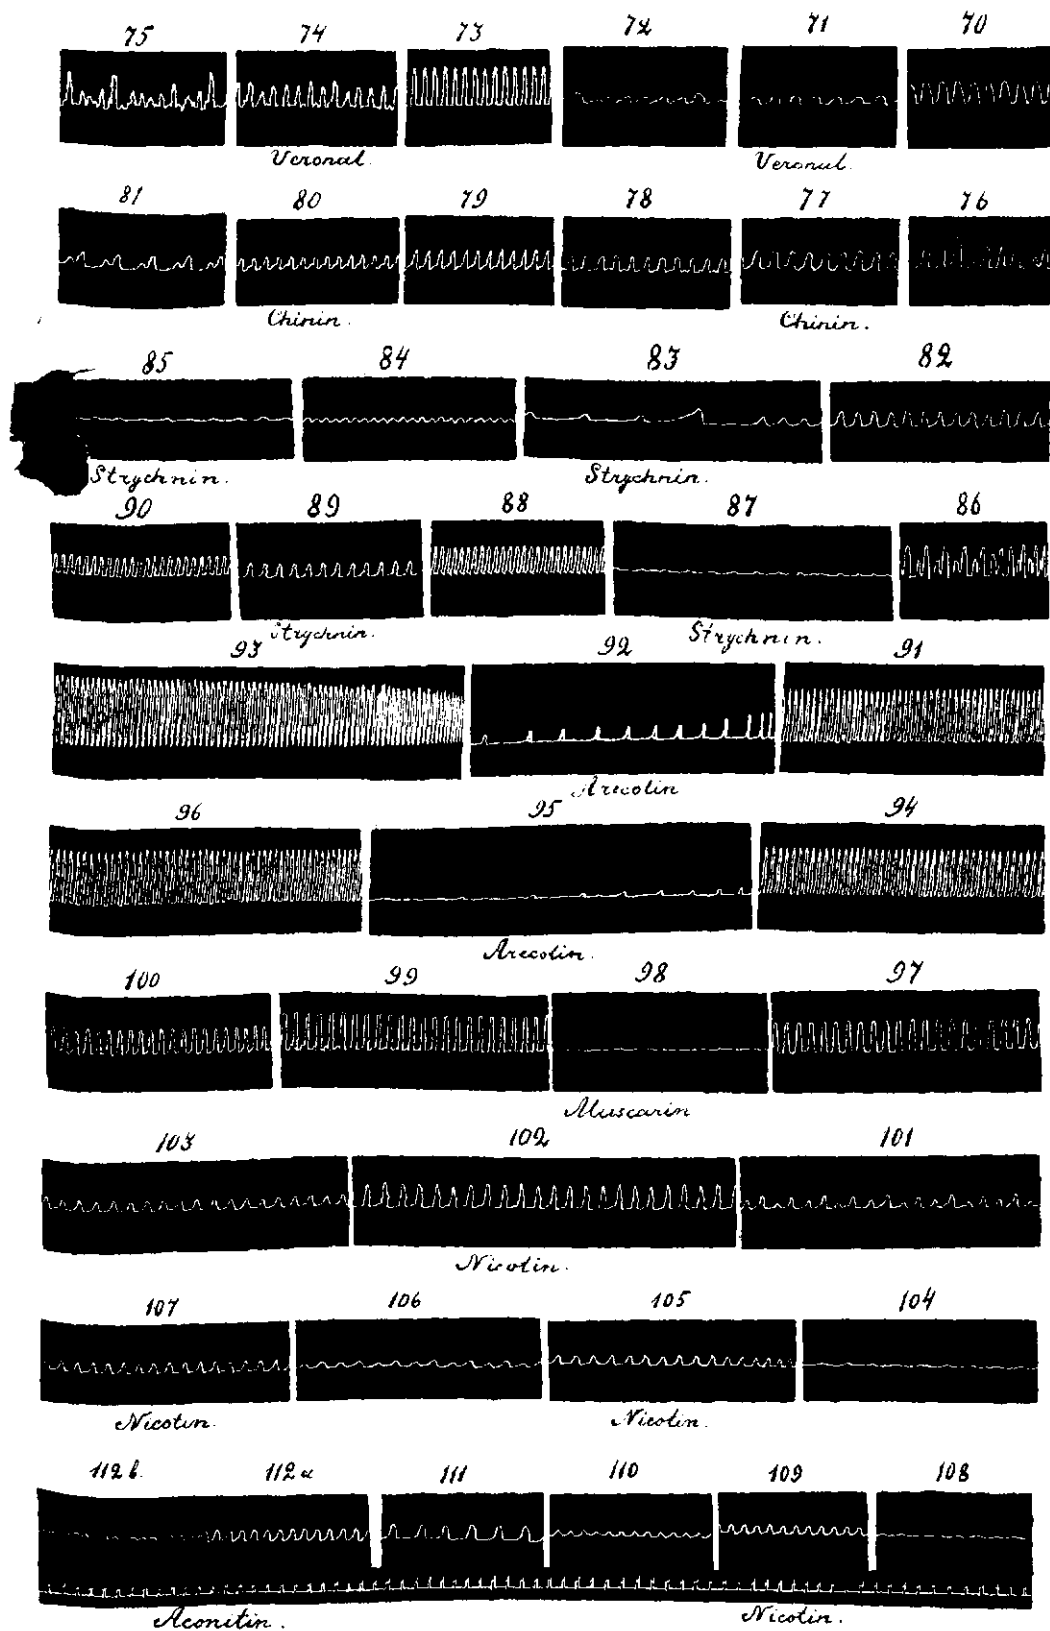 75 74 73 72 71 70
Veronal. Veronal.
81 80 79 78 77 76
Chinin. Chinin.
85 84 83 82
Strychnin. Strychnin.
90 89 88 87 86
Strychnin. Strychnin.
93 92 91
Arecolin
96 95 94
Arecolin.
100 99 98 97
Muscarin
103 102 101
Nicotin.
107 106 105 104
Nicotin. Nicotin.
112 b. 112 a 111 110 109 108
Aconitin. Nicotin.